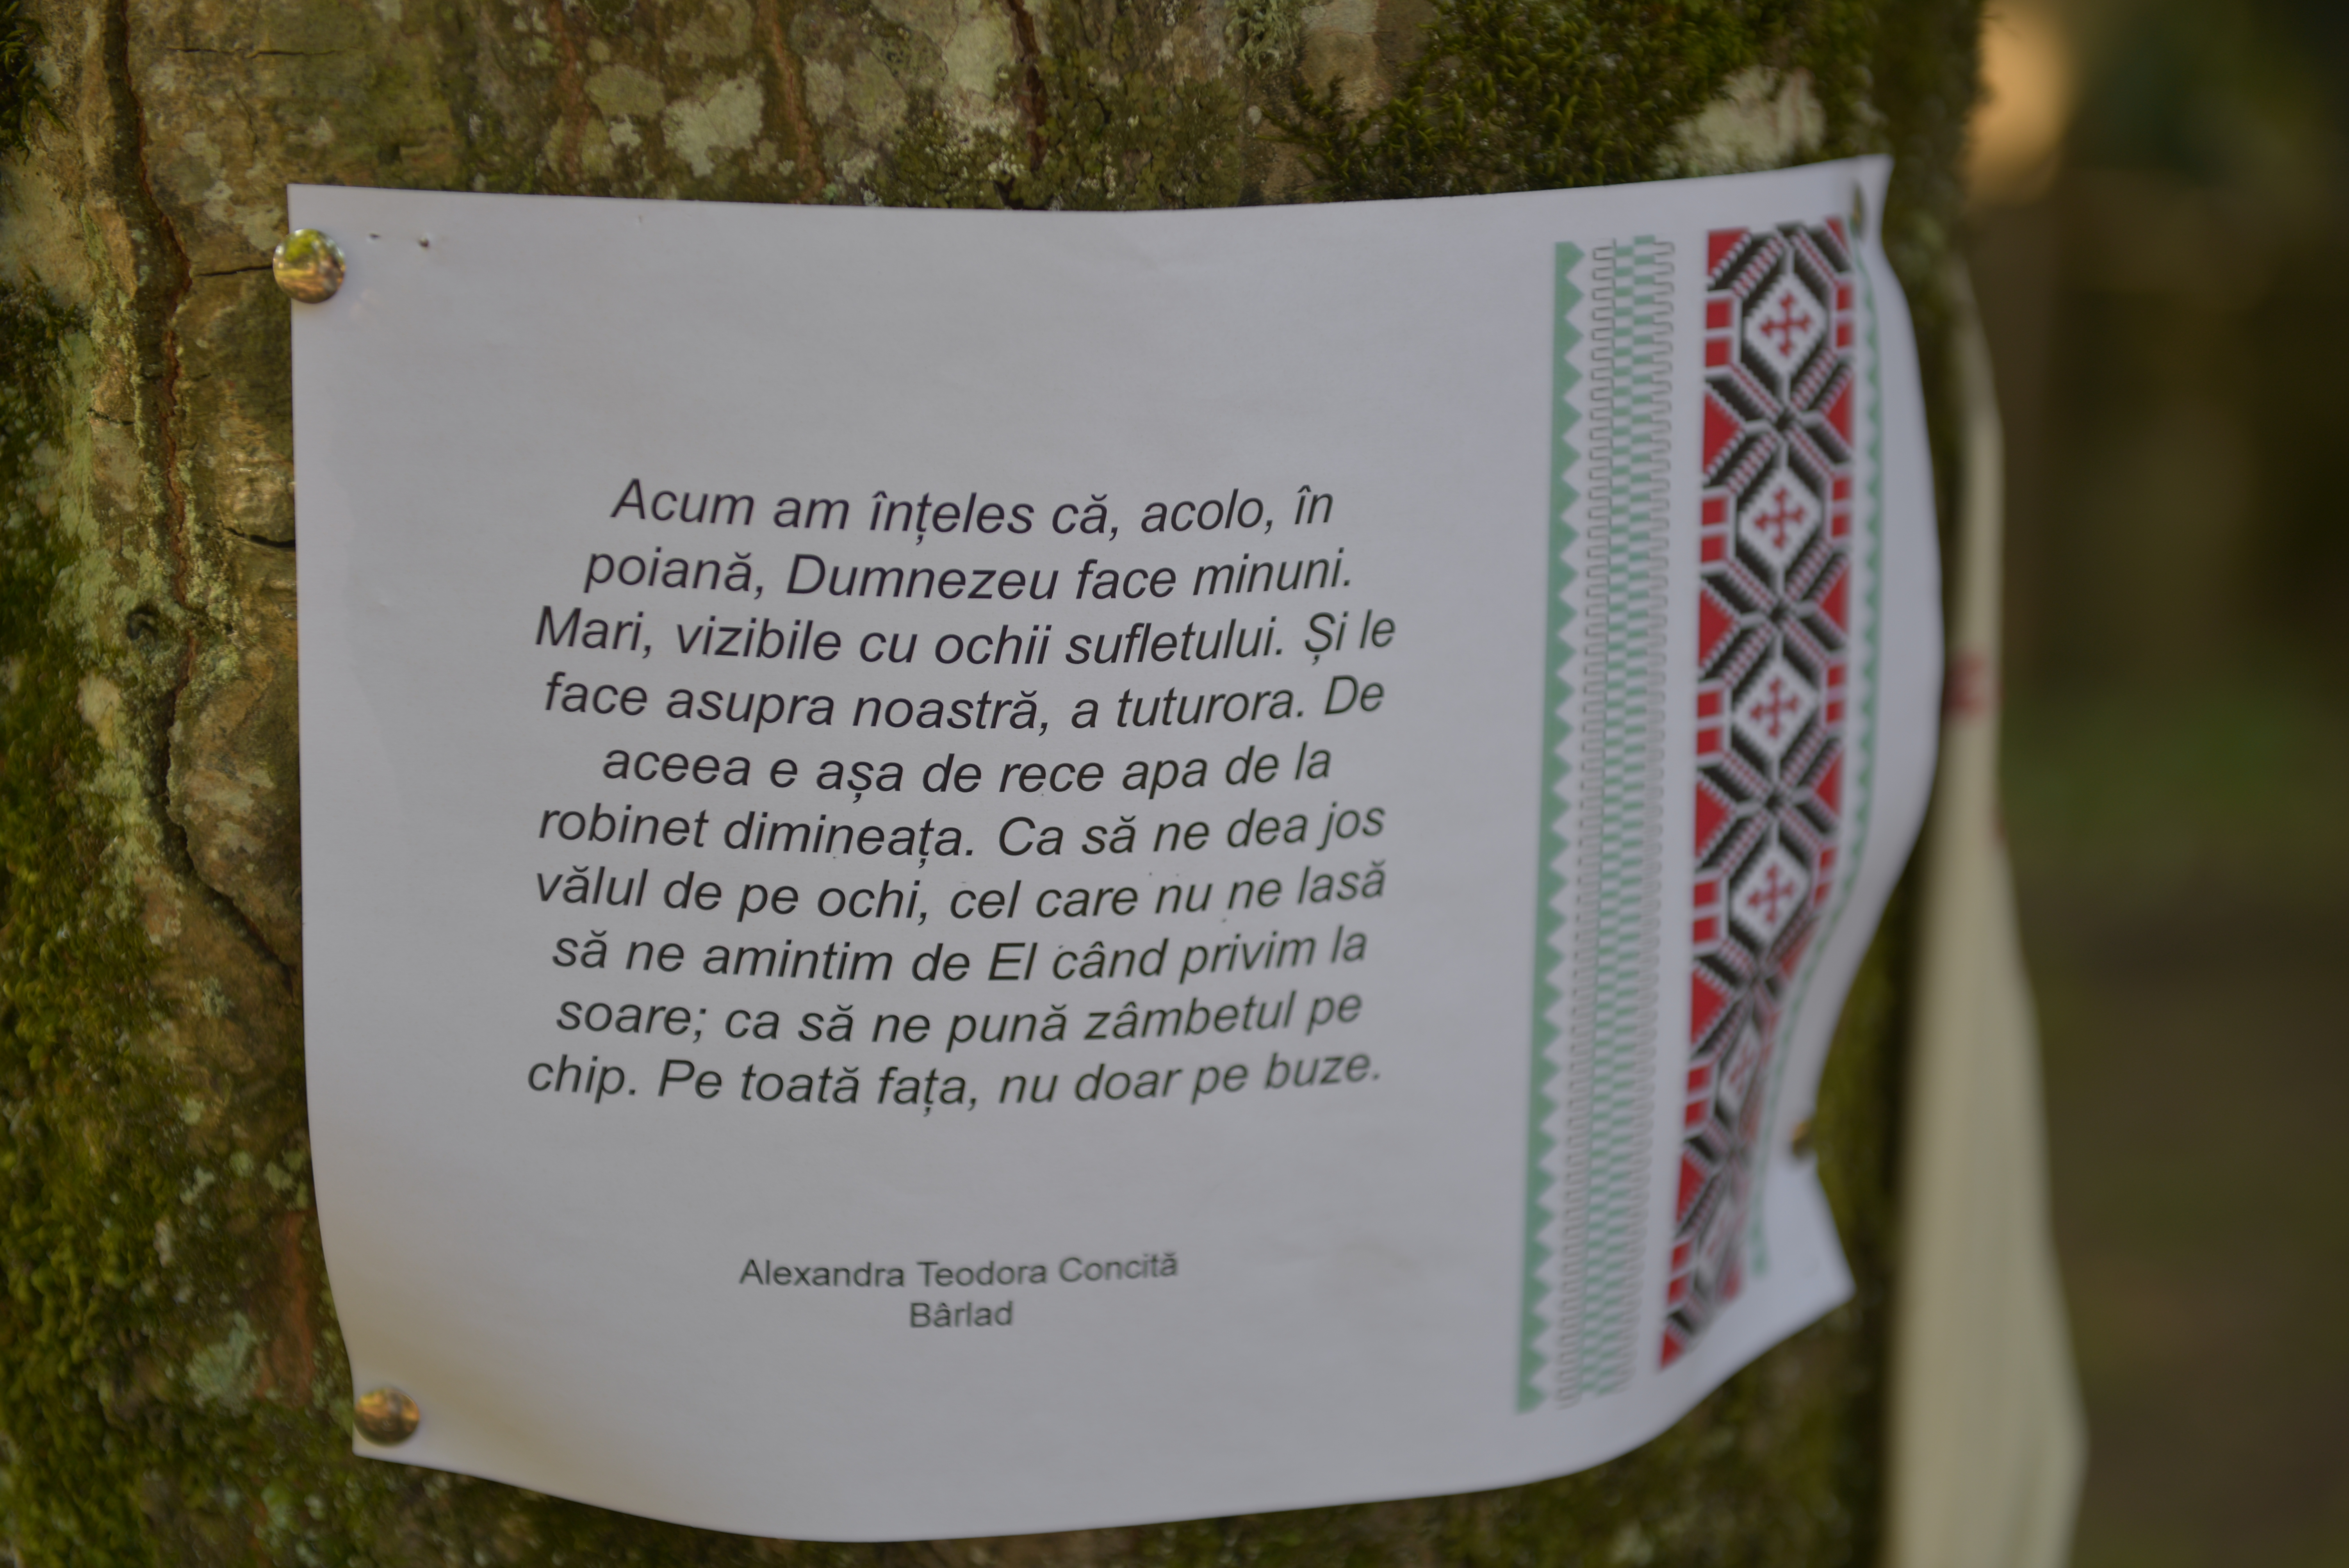 Acum am înțeles că, acolo, în
poiană, Dumnezeu face minuni.
Mari, vizibile cu ochii sufletului. Și le
face asupra noastră, a tuturora. De
aceea e așa de rece apa de la
robinet dimineața. Ca să ne dea jos
vălul de pe ochi, cel care nu ne lasă
să ne amintim de El când privim la
soare; ca să ne pună zâmbetul pe
chip. Pe toată fața, nu doar pe buze.
Alexandra Teodora Concită
Bârlad